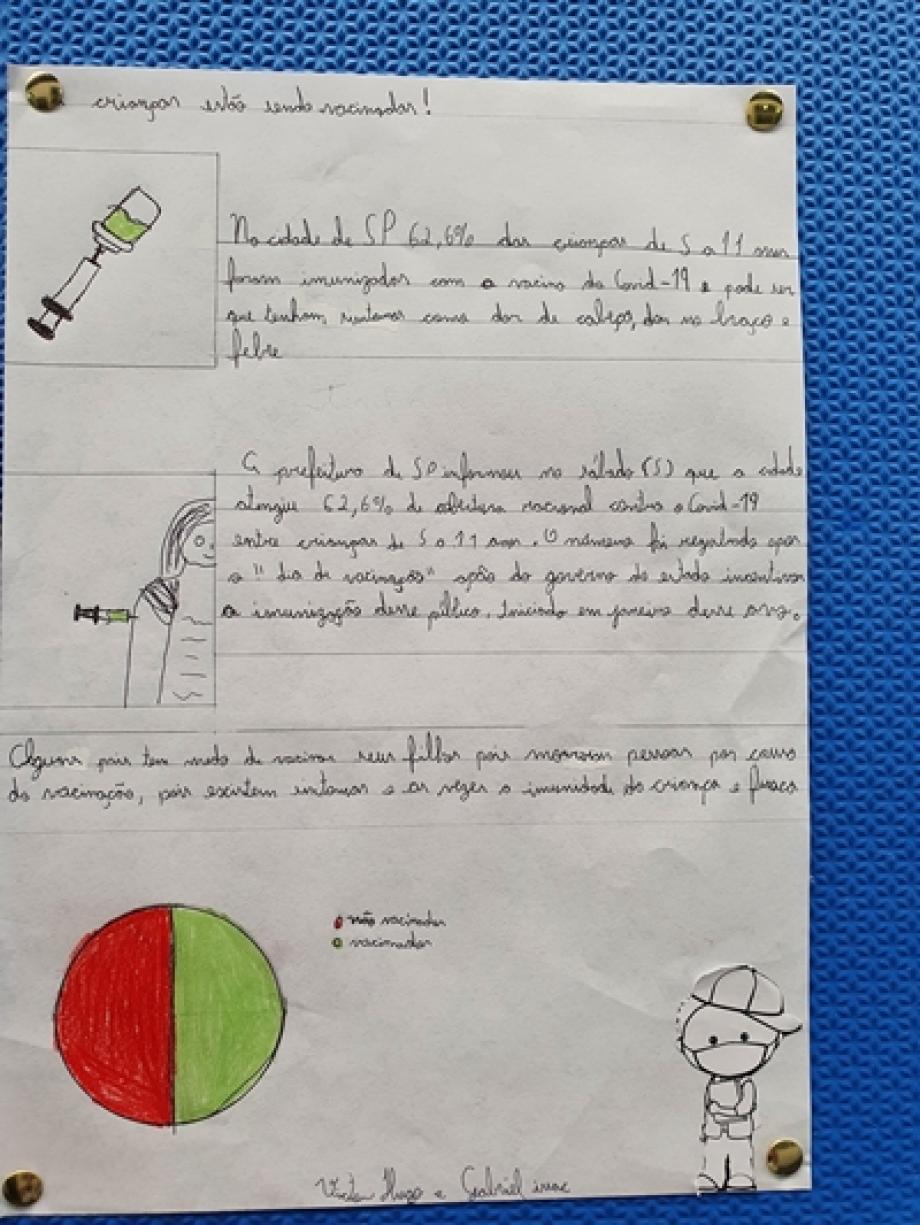 crianças estão sendo vacinadas!
Na cidade de SP 62,6% das crianças de 5 a 11 anos
foram imunizadas com a vacina da Covid-19 e pode ser
que tenham sintomas como dor de cabeça, dor no braço e
febre
A prefeitura de SP informou no sábado (5) que a cidade
atengiu 62,6% de cobertura vacional contra o Covid-19
entre crianças de 5 a 11 anos. O número foi registrado apos
o "dia de vacinação" após do governo do estado incentivar
a imunização desse público, iniciado em janeiro desse ano.
Alguns pais tem medo de vacinar seus filhos pois morreram pessoas por causa
da vacinação, pois existem sintomas e as vezes a imunidade da criança e fraca
não vacinados
vacinados
Victor Hugo e Gabriel isac